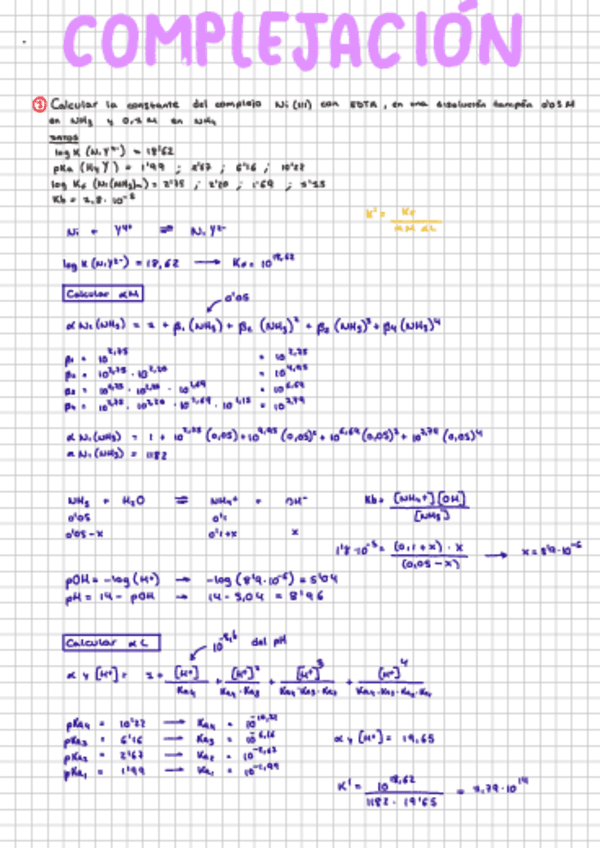 COMPLEJACIÓN
1 Calcular la constante del complejo Ni(III) con EDTA, en una disolución tampón 0'05 M
en NH3 y 0,1 M en NH4
DATOS
log K (NiY2-) = 18'62
pKa (H4Y) = 1'99 ; 2'67 ; 6'16 ; 10'22
log Kf (Ni(NH3)n) = 2'75 ; 2'20 ; 1'69 ;
Kb = 1,8·10-5
K' = Kf / αM αL
Ni + Y4- ⇌ NiY2-
log K (NiY2-) = 18,62 → Kf = 10^18,62
Calcular αM
0'05
α Ni(NH3) = 1 + β1 (NH3) + β2 (NH3)^2 + β3 (NH3)^3 + β4 (NH3)^4
β1 = 10^2,75 = 10^2,75
β2 = 10^2,75 · 10^2,20 = 10^4,95
β3 = 10^2,75 · 10^2,20 · 10^1,69 = 10^6,64
β4 = 10^2,75 · 10^2,20 · 10^1,69 · 10^1,15 = 10^7,79
α Ni(NH3) = 1 + 10^2,75 (0,05) + 10^4,95 (0,05)^2 + 10^6,64 (0,05)^3 + 10^7,79 (0,05)^4
α Ni(NH3) = 1182
NH3 + H2O ⇌ NH4+ + OH-
0'05 0'1
0'05-x 0'1+x x
Kb = [NH4+][OH] / [NH3]
1'8·10-5 = (0,1+x)·x / (0,05-x) → x = 8'9·10-6
pOH = -log(H+) → -log(8'9·10-6) = 5'04
pH = 14 - pOH → 14 - 5,04 = 8'96
Calcular αL
del pH
α y [H+] = 1 + [H+] / Ka4 + [H+]^2 / Ka4·Ka3 + [H+]^3 / Ka4·Ka3·Ka2 + [H+]^4 / Ka4·Ka3·Ka2·Ka1
pKa4 = 10'22 → Ka4 = 10^-10,22
pKa3 = 6'16 → Ka3 = 10^-6,16
pKa2 = 2'67 → Ka2 = 10^-2,67
pKa1 = 1'99 → Ka1 = 10^-1,99
α y [H+] = 19,65
K' = 10^18,62 / 1182 · 19'65 = 1,79·10^14